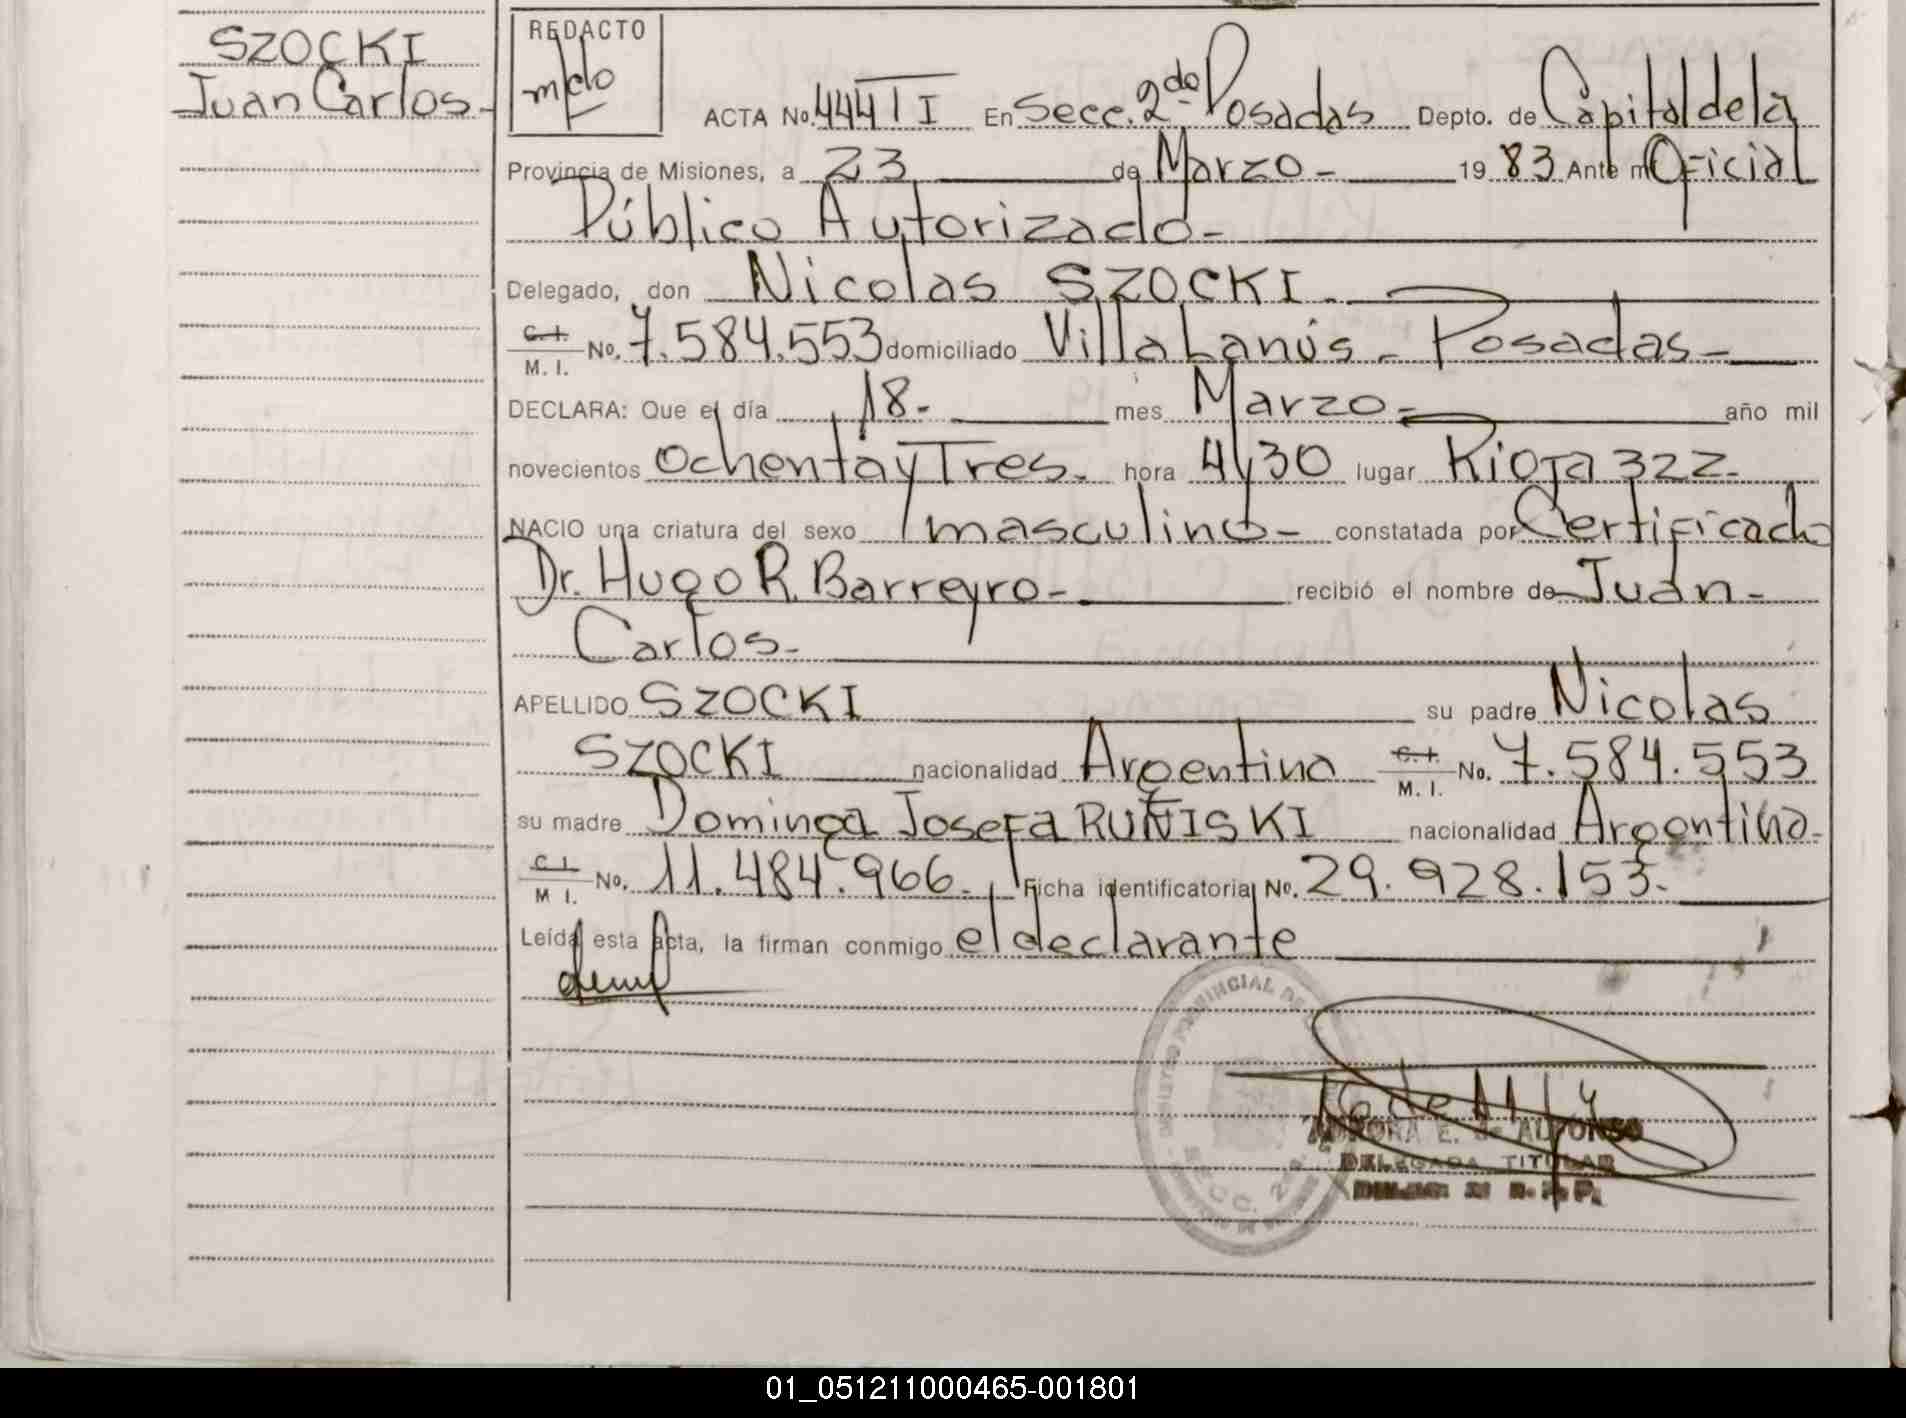 SZOCKI
Juan Carlos.-
REDACTO
ACTA No. 444 T I En Secc. 2do Posadas Depto. de Capital de la
Provincia de Misiones, a 23 de Marzo - 19 83 Ante mi Oficial
Público Autorizado-
Delegado, don Nicolas SZOCKI.
C. I. M. I. No. 7.584.553 domiciliado Villa Lanús - Posadas-
DECLARA: Que el día 18.- mes Marzo- año mil
novecientos ochenta y Tres.- hora 4,30 lugar Rioja 322.-
NACIO una criatura del sexo masculino- constatada por Certificado
Dr. Hugo R. Barreyro- recibió el nombre de Juan-
Carlos-
APELLIDO SZOCKI su padre Nicolas
SZOCKI nacionalidad Argentina C. I. M. I. No. 7.584.553
su madre Dominga Josefa RUÑISKI nacionalidad Argentina.
C. I. M I. No. 11.484.966. Ficha identificatoria No. 29.928.153.-
Leída esta acta, la firman conmigo el declarante
PROVINCIAL DE
SECC. 2
AURORA E. de ALFONSO
DELEGADA TITULAR
01_051211000465-001801